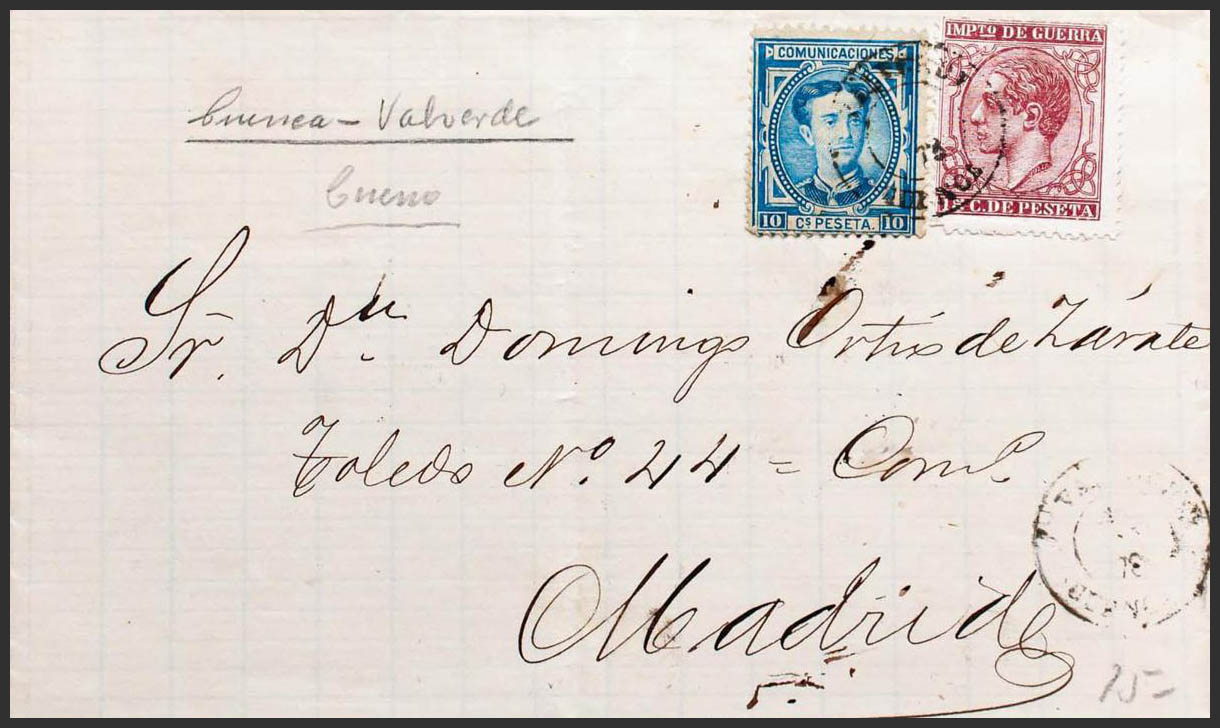 COMUNICACIONES
10 Cˢ PESETA. 10
IMPᵀᴼ DE GUERRA
C. DE PESETA
Cuenca - Valverde
bueno
Sr. Dn. Domingo Ortiz de Zárate
Toledo Nº. 44 = Comº.
Madrid
15-